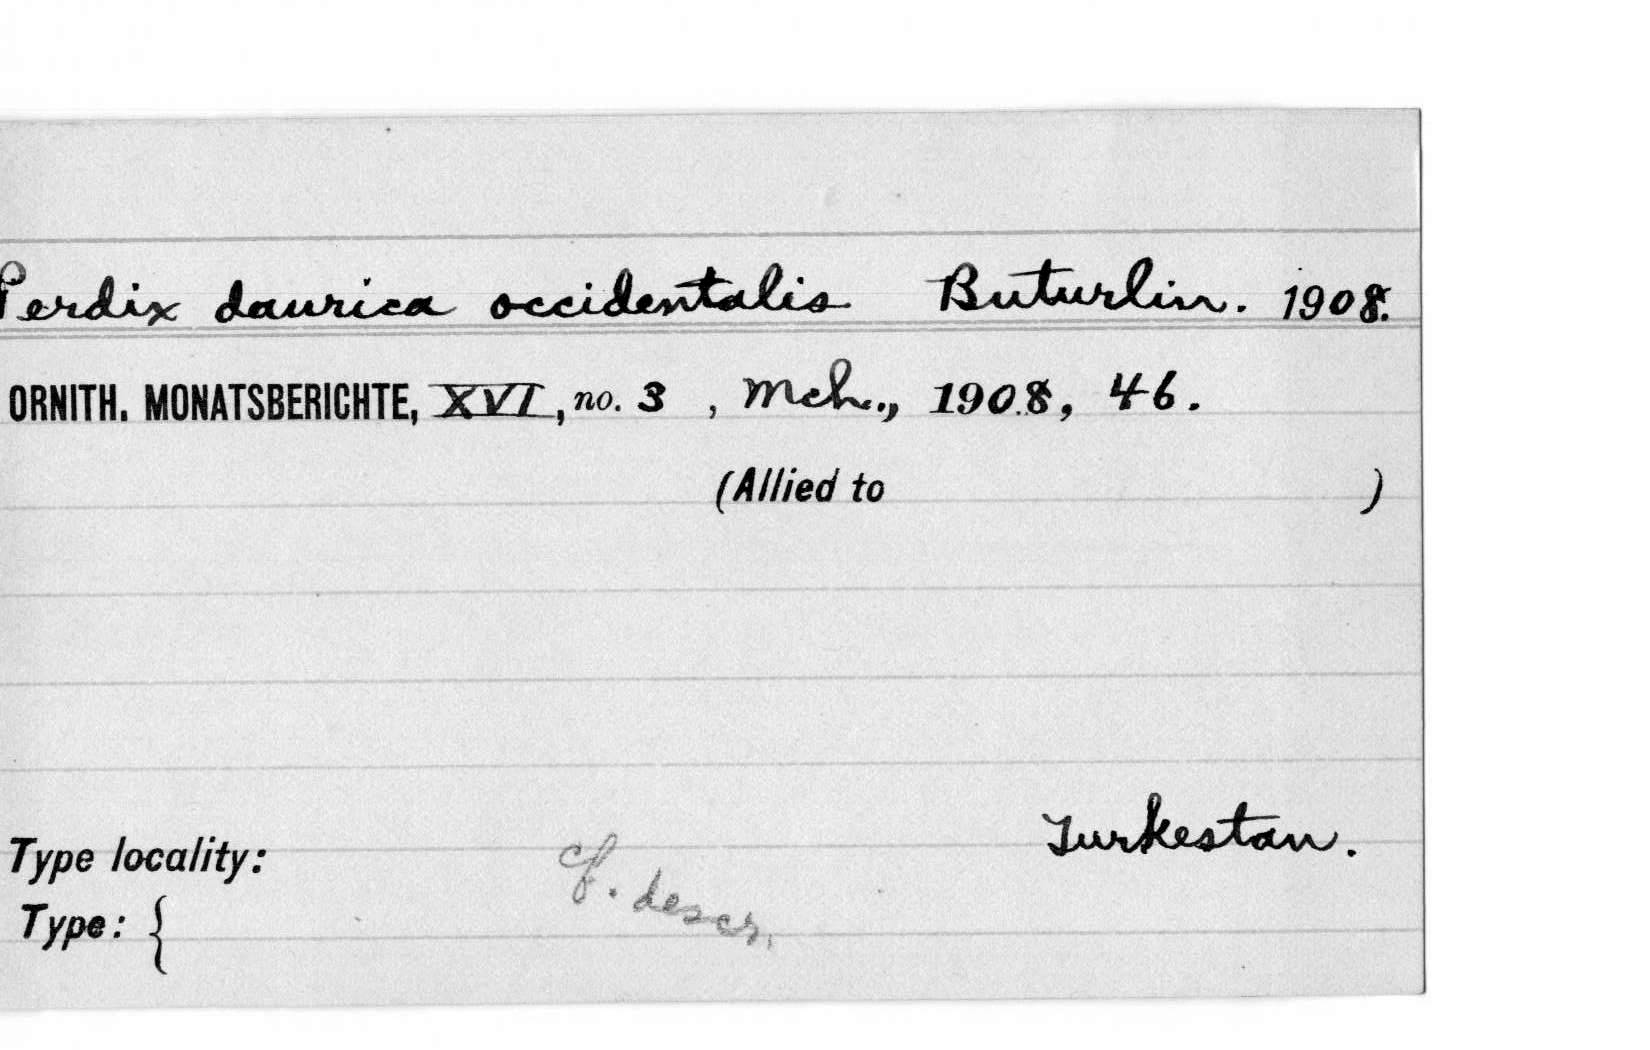 Perdix daurica occidentalis Buturlin. 1908.
ORNITH. MONATSBERICHTE, XVI, no. 3 , Mch., 1908, 46.
(Allied to )
Turkestan.
Type locality:
cf. descr.
Type: {